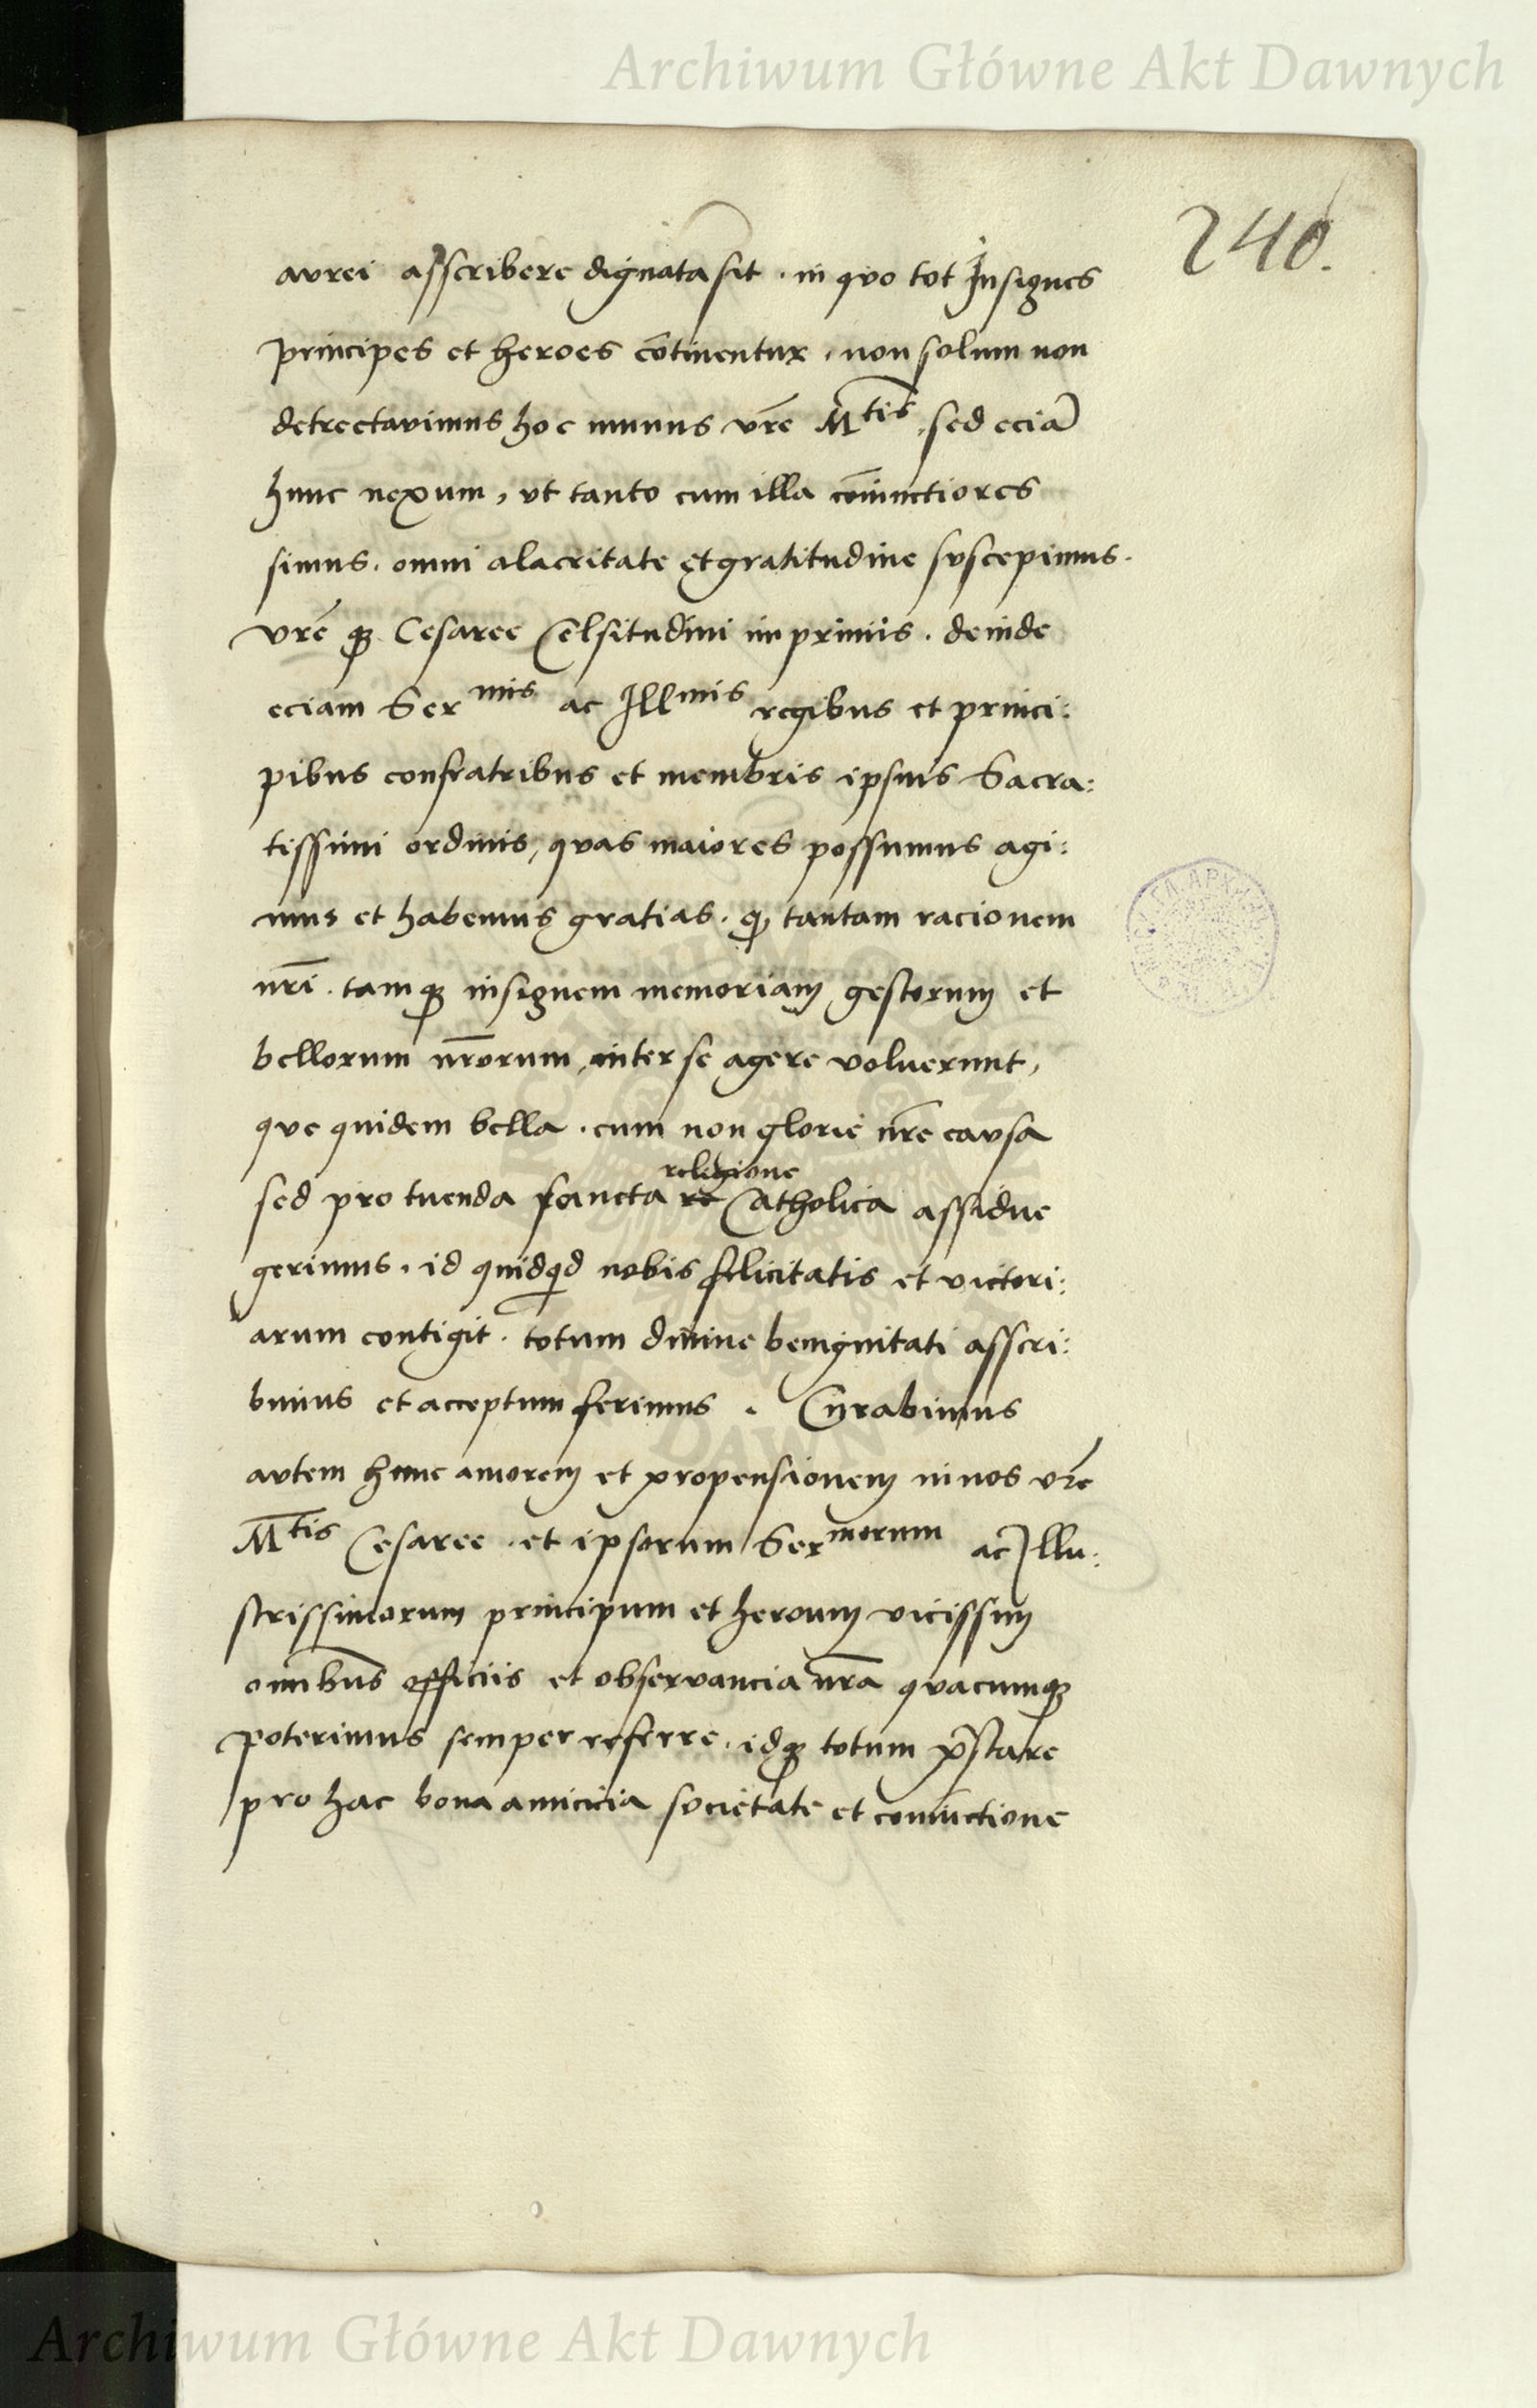 Archiwum Główne Akt Dawnych
240.
aurei asscribere dignata sit . in quo tot Insignes
principes et heroes co̅tinentur , non solum non
detrectavimus hoc munus vr̅e M^tis , sed ecia̅
hunc nexum , ut tanto cum illa co̅iunctiores
simus . omni alacritate et gratitudine suscepimus .
vr̅e q3 Cesaree Celsitudini in primis . deinde
eciam Ser^mis ac Ill^mis regibus et princi:
pibus confratribus et membris ipsius Sacra:
tissimi ordinis , quas maiores possumus agi:
mus et habemus gratias . q̨ tantam racionem
nr̅i . tam q3 insignem memoriam gestorum et
bellorum nr̅orum , inter se agere voluerunt ,
que quidem bella . cum non glorie nr̅e causa
religione
sed pro tuenda sancta re Catholica assidue
gerimus . id quidq̇d nobis felicitatis et victori:
arum contigit . totum divine benignitati asscri:
bimus et acceptum ferimus . Curabimus
autem hunc amorem et propensionem in nos vr̅e
M^tis Cesaree . et ipsorum Ser^morum ac Illu:
strissimorum principum et heroum vicissim
om̅ibus officiis et observancia nr̅a quacumq3
poterimus semper referre . idq3 totum p̅stare
pro hac bona amicicia societate et coniu̅ctione
Archiwum Główne Akt Dawnych